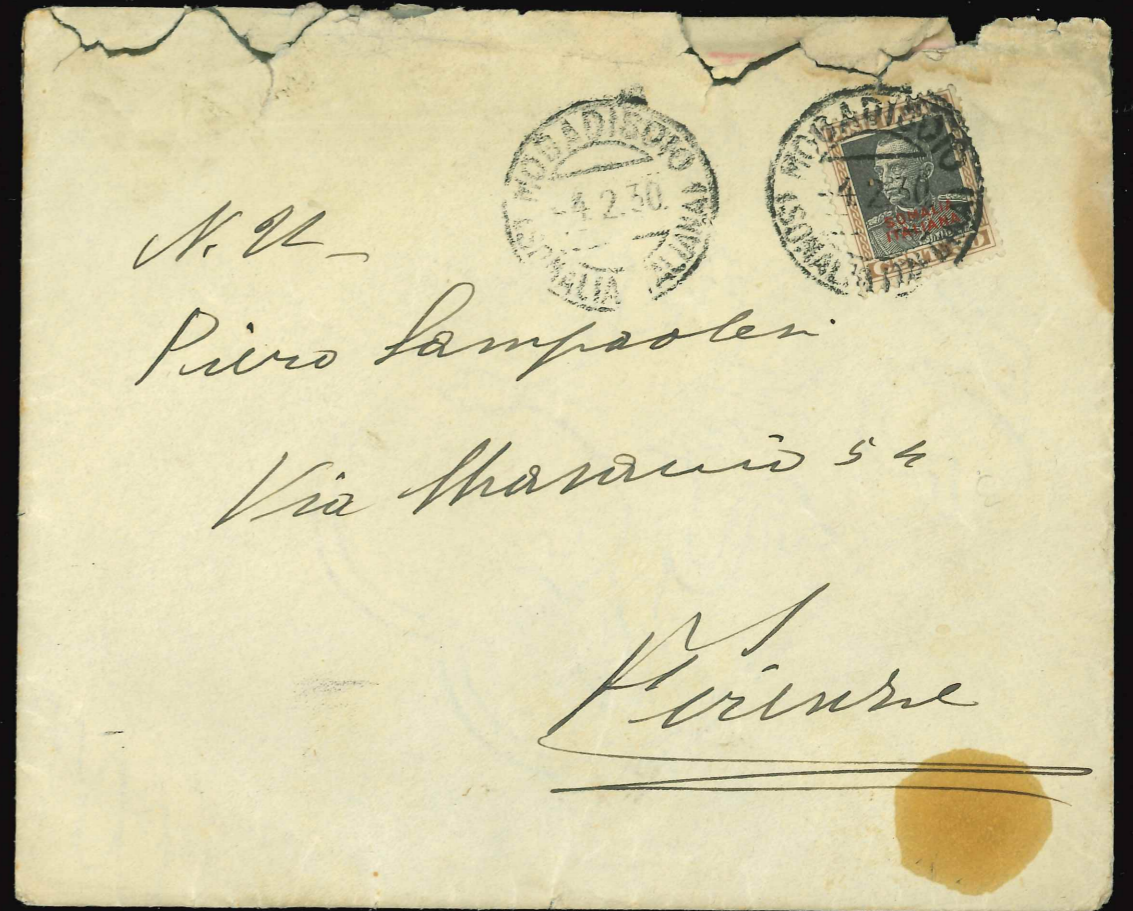 MOGADISCIO
-4.2.30.
(SOMALIA ITALIANA)
MOGADISCIO
-4.2.30.
(SOMALIA ITALIANA)
SOMALIA
ITALIANA
N. U -
Piero Sampaolesi
Via Masaccio 54
Firenze